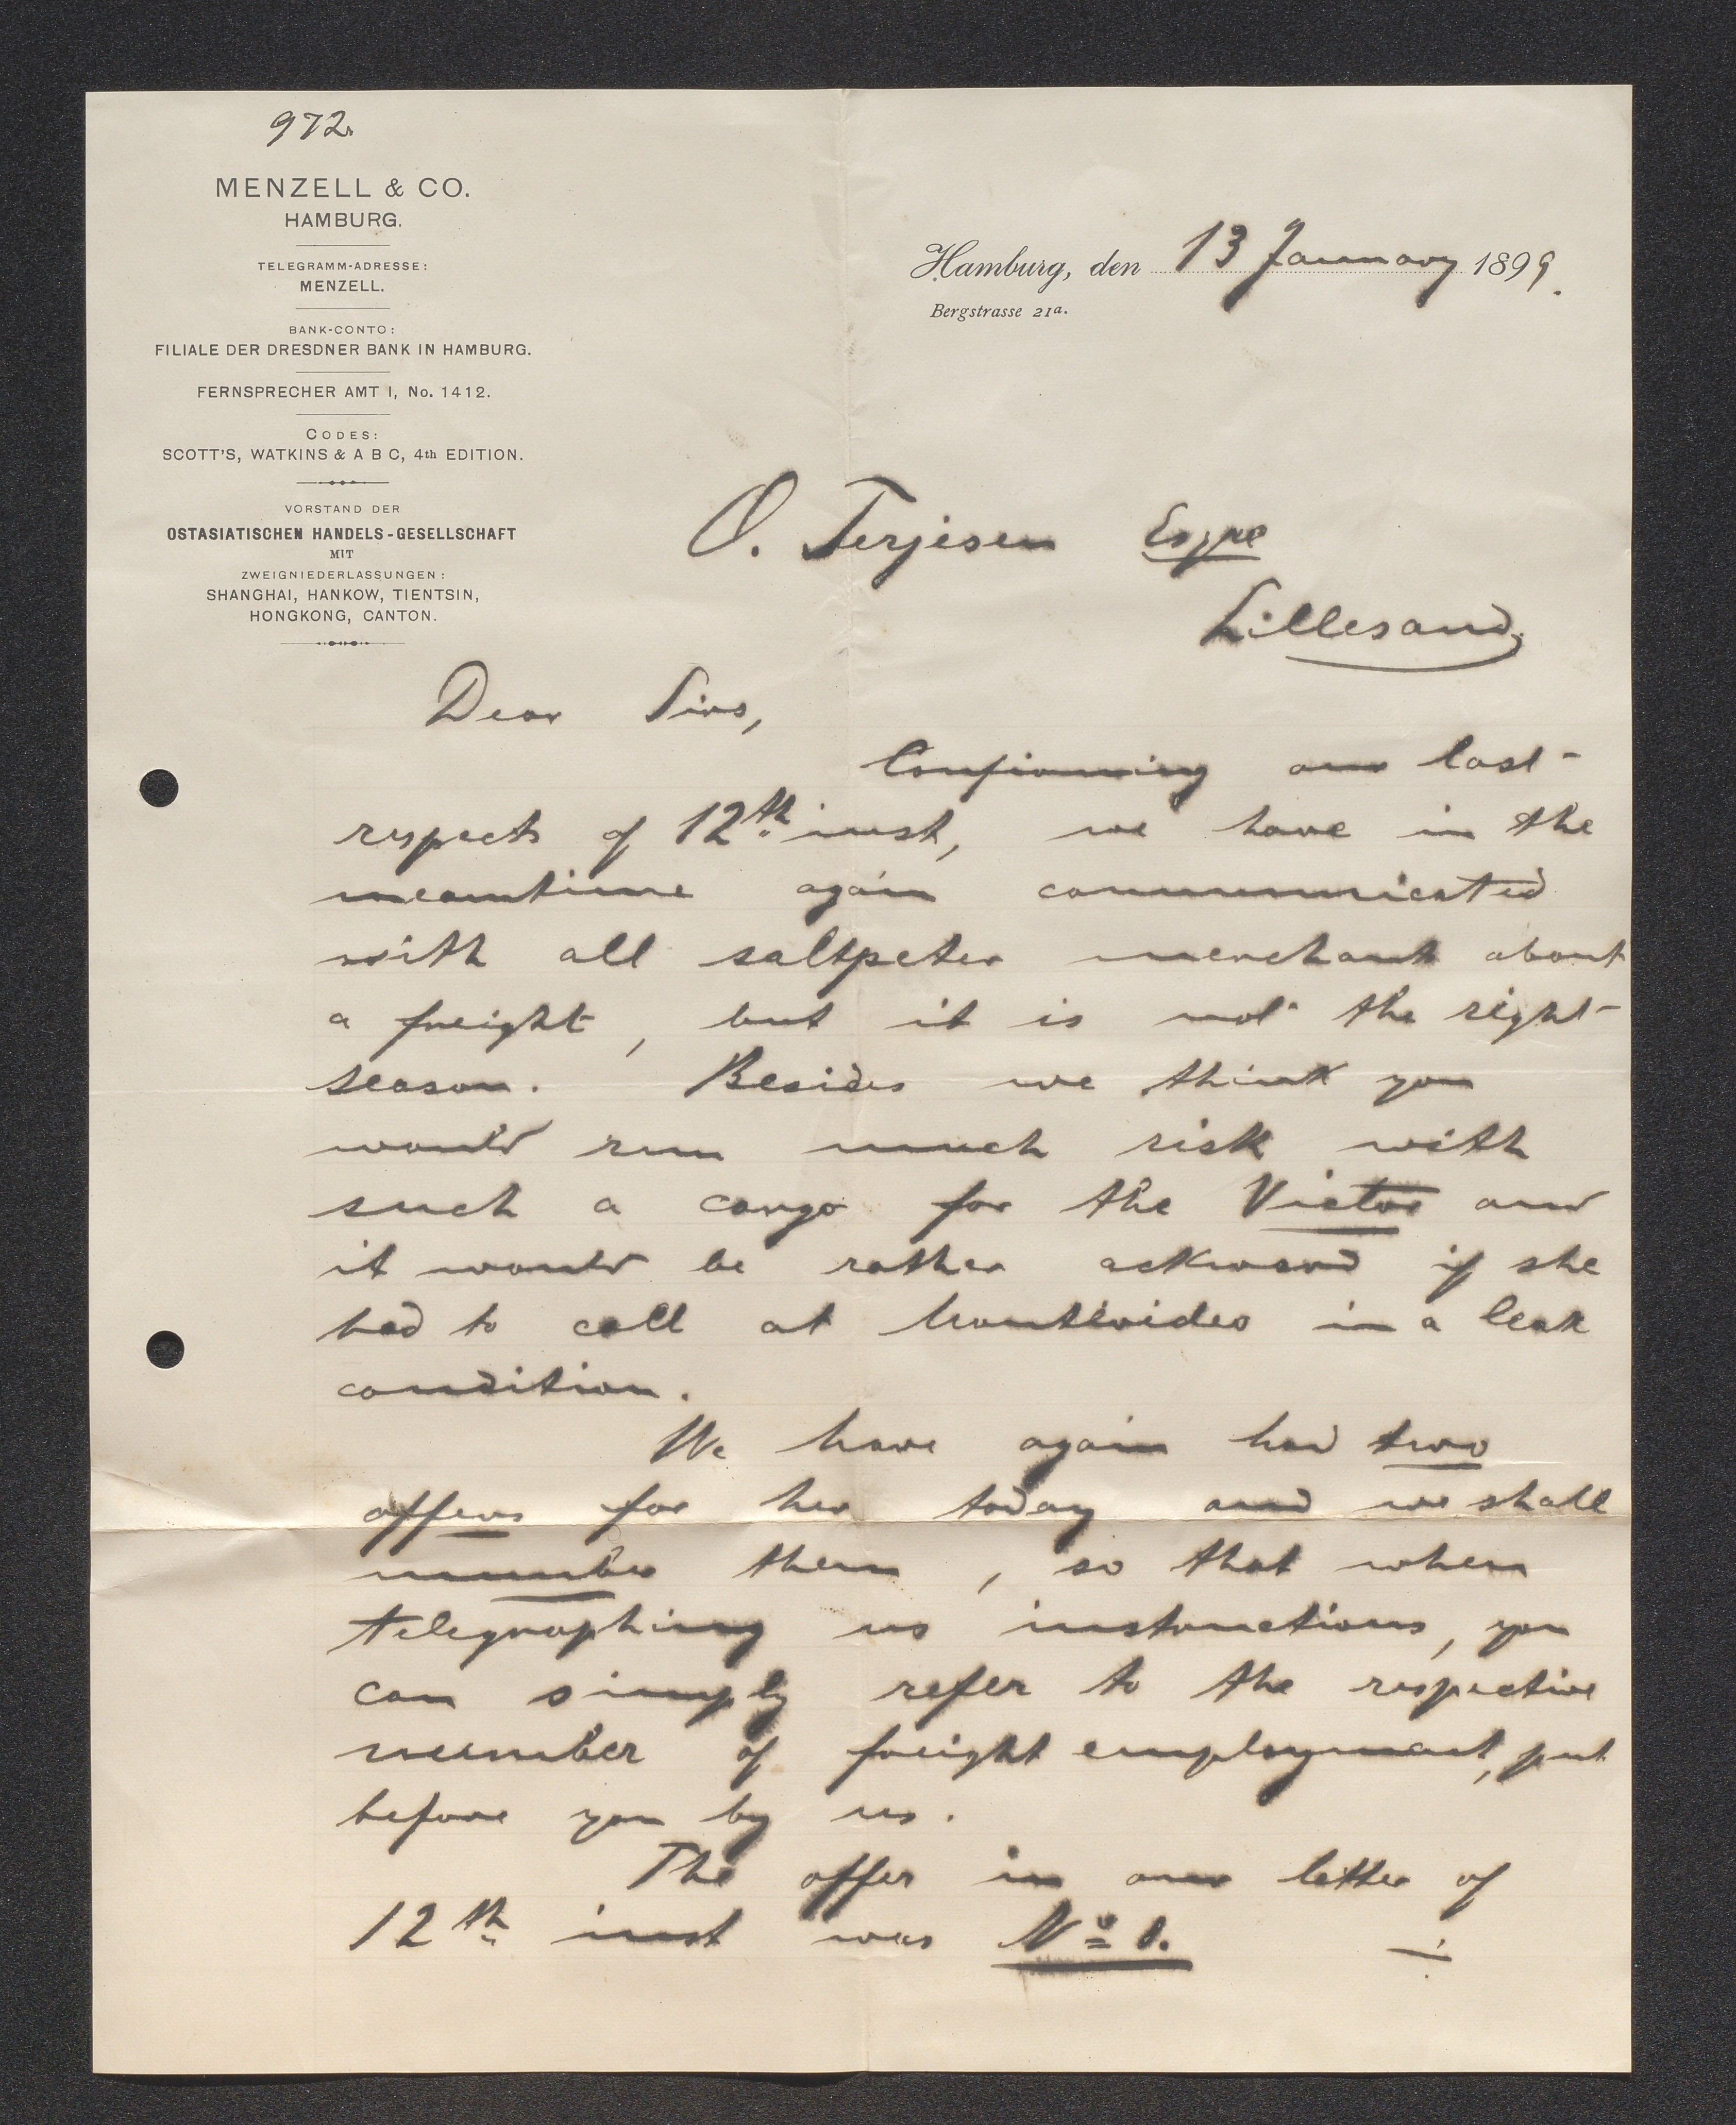 972
MENZELL & CO.
HAMBURG.
TELEGRAMM-ADRESSE:
MENZELL.
BANK-CONTO:
FILIALE DER DRESDNER BANK IN HAMBURG.
FERNSPRECHER AMT I, No. 1412.
CODES:
SCOTT'S, WATKINS & A B C, 4th EDITION.
VORSTAND DER
OSTASIATISCHEN HANDELS-GESELLSCHAFT
MIT
ZWEIGNIEDERLASSUNGEN:
SHANGHAI, HANKOW, TIENTSIN,
HONGKONG, CANTON.
Hamburg, den 13 January 1899.
Bergstrasse 21a.
O. Terjesen Esqre
Lillesand
Dear Sirs,
Confirming our last
respects of 12th inst, we have in the
meantime again communicated
with all saltpeter merchants about
a freight, but it is not the right
season. Besides we think you
would run much risk with
such a cargo for the Victor and
it would be rather ackward if she
had to call at Montevideo in a leak
condition.
We have again had two
offers for her today and we shall
number them, so that when
telegraphing us instructions, you
can simply refer to the respective
number of freight employment, put
before you by us.
The offer in our letter of
12th inst was No